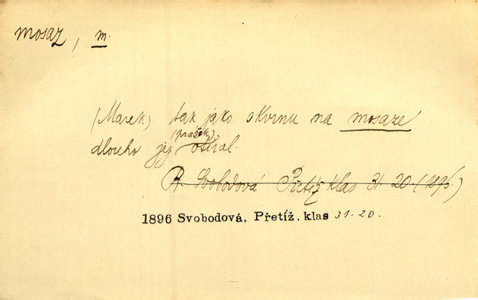 mosaz, m.
(Marek) tak jako skvrnu na mosaze
(prášek)
dlouho jej otíral.
R. Svobodová Přetíž. klas 31. 20 (1896)
1896 Svobodová, Přetíž. klas 31. 20.